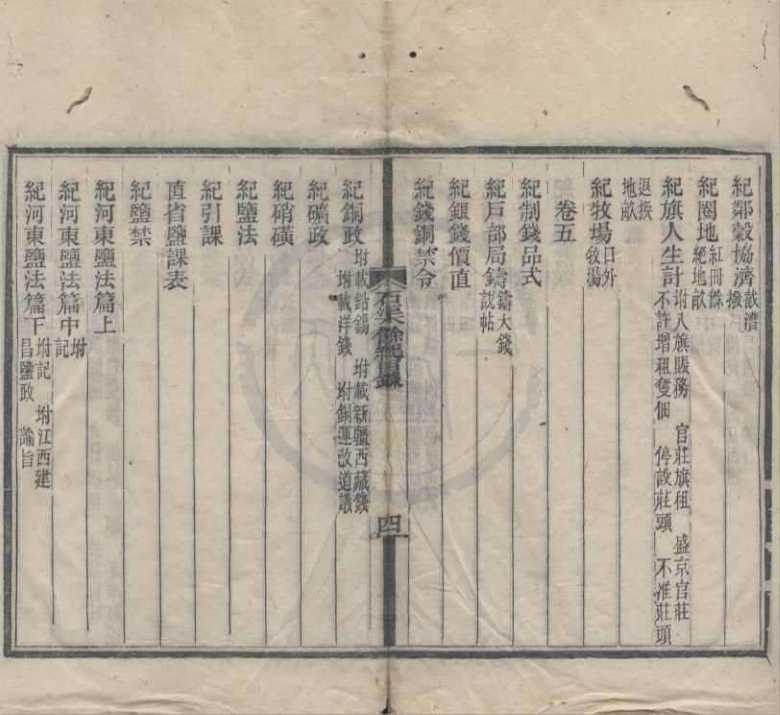 紀鄰穀協濟 截漕
撥
紀圈地 紅冊餘
絕地畝
紀旗人生計 坿八旗賑務 官莊旗租 盛京官莊
不許增租奪佃 停設莊頭 不准莊頭
退換
地畝
紀牧場 口外
牧場
卷五
紀制錢品式
紀戶部局鑄 鑄大錢
說帖
紀銀錢價值
紀錢銅禁令
石渠餘紀目錄
四
紀銅政 坿載鉛錫 坿載新疆西藏錢
坿載洋錢 坿銅運改道議
紀礦政
紀硝磺
紀鹽法
紀引課
直省鹽課表
紀鹽禁
紀河東鹽法篇上
紀河東鹽法篇中 坿
記
紀河東鹽法篇下 坿記 坿江西建
昌鹽政 論旨